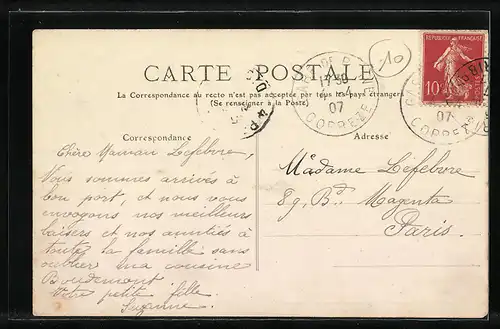 CARTE POSTALE
La Correspondance au recto n'est pas acceptée par tous les pays étrangers
(Se renseigner à la Poste)
Correspondance
Adresse
Chère Maman Lefebvre,
Nous sommes arrivés à
bon port, et nous vous
envoyons nos meilleurs
baisers et nos amitiés à
toute la famille sans
oublier ma cousine
Boudemont
Votre petite fille
Suzanne
Madame Lefebvre
89, Bd. Magenta
Paris.
10
REPUBLIQUE FRANÇAISE
10
17 30
07
CORREZE
07
CORREZE